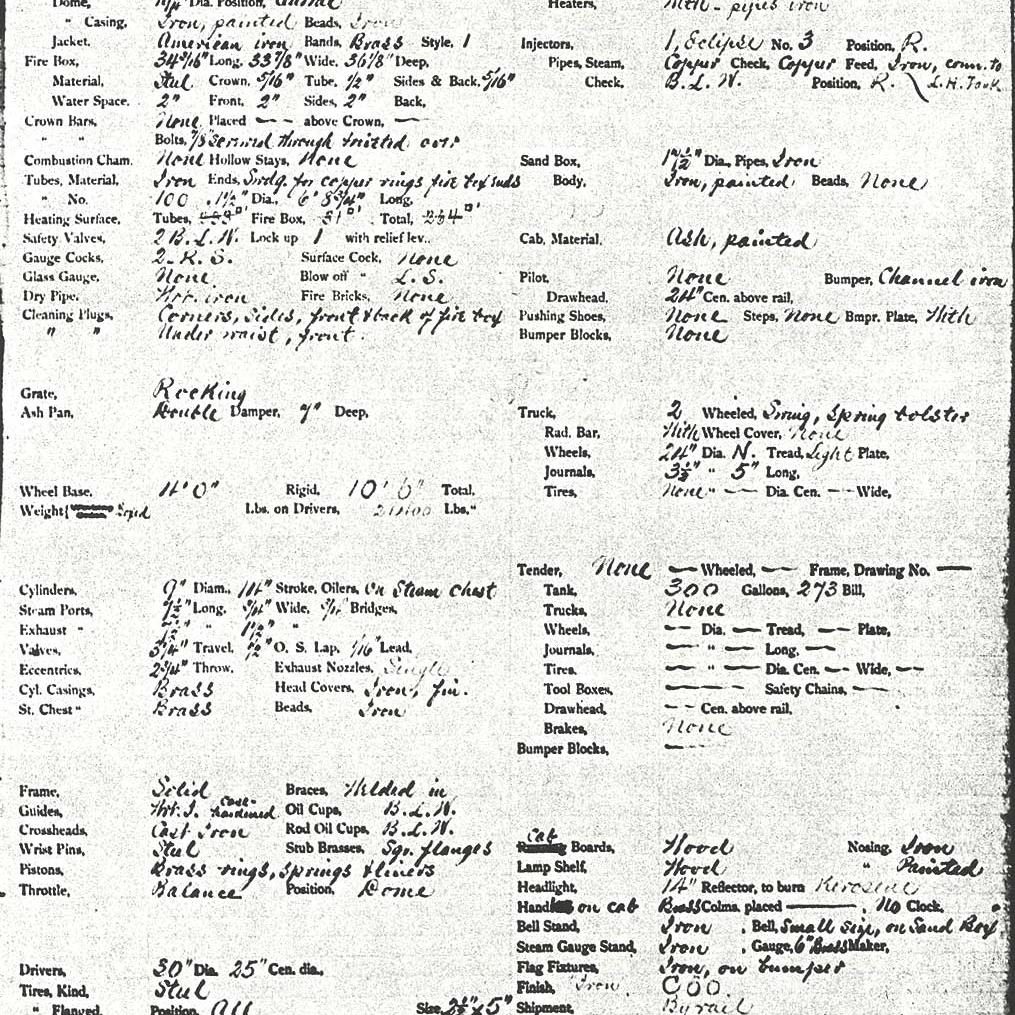 Dome, Dia. Position,
" Casing, Iron, painted Beads, Iron
Jacket, American iron Bands, Brass Style, 1
Fire Box, 34 3/16" Long, 33 7/8" Wide, 36 1/8" Deep,
Material, Steel Crown, 5/16" Tube, 1/2" Sides & Back, 5/16"
Water Space, 2" Front, 2" Sides, 2" Back,
Crown Bars, None Placed — above Crown, —
" " Bolts, 7/8" screwed through & riveted over
Combustion Cham. None Hollow Stays, None
Tubes, Material, Iron Ends, Swdg. for copper rings fire box ends
" No. 100 , 1 1/2" Dia., 6' Long,
Heating Surface, Tubes, Fire Box, Total,
Safety Valves, 2 B.L.W. Lock up 1 with relief lev..
Gauge Cocks, 2. R.S. Surface Cock, None
Glass Gauge, None Blow off " L.S.
Dry Pipe, Wrt. iron Fire Bricks, None
Cleaning Plugs, Corners, sides, front & back of fire box
" " Under waist, front.
Grate, Rocking
Ash Pan, Double Damper, 7" Deep,
Wheel Base, 4' 0" Rigid, 10' 6" Total,
Weight Lbs. on Drivers, Lbs."
Cylinders, 9" Diam., 14" Stroke, Oilers, On Steam chest
Steam Ports, Long, Wide, Bridges,
Exhaust " " 1 1/2" "
Valves, Travel, O. S. Lap, 1/16" Lead,
Eccentrics, 2 3/4" Throw, Exhaust Nozzles, Single
Cyl. Casings, Brass Head Covers, Iron, fin.
St. Chest " Brass Beads, Iron
Frame, Solid Braces, Welded in
Guides, Wrt. I. case-hardened Oil Cups, B.L.W.
Crossheads, Cast Iron Rod Oil Cups, B.L.W.
Wrist Pins, Steel Stub Brasses, Sqr. flanges
Pistons, Brass rings, springs & liners
Throttle, Balance Position, Dome
Drivers, 30" Dia. 25" Cen. dia.,
Tires, Kind, Steel
" Flanged, Position, All Size, 2 1/2" x 5"
Heaters, With - pipes iron
Injectors, 1, Eclipse No. 3 Position, R.
Pipes, Steam, Copper Check, Copper Feed, Iron, conn. to L.H. Tank
Check, B.L.W. Position, R.
Sand Box, Dia., Pipes, Iron
Body, Iron, painted Beads, None
Cab, Material, Ash, painted
Pilot, None Bumper, Channel iron
Drawhead, 24" Cen. above rail,
Pushing Shoes, None Steps, None Bmpr. Plate, With
Bumper Blocks, None
Truck, 2 Wheeled, Swing, spring bolster
Rad. Bar, With Wheel Cover, None
Wheels, 24" Dia. N. Tread, Light Plate,
Journals, 3 1/2" " 5" Long,
Tires, None " — Dia. Cen. — Wide,
Tender, None — Wheeled, — Frame, Drawing No. —
Tank, 300 Gallons, 273 Bill,
Trucks, None
Wheels, — Dia. — Tread, — Plate,
Journals, — " — Long, —
Tires, — " — Dia. Cen. — Wide, —
Tool Boxes, — Safety Chains, —
Drawhead, — Cen. above rail,
Brakes, None
Bumper Blocks, —
Cab Boards, Wood Nosing, Iron
Lamp Shelf, Wood " Painted
Headlight, 14" Reflector, to burn Kerosene
Hand on cab Brass Colms. placed — , No Clock,
Bell Stand, Iron , Bell, Small size, on Sand Box.
Steam Gauge Stand, Iron , Gauge, 6" Brass Maker,
Flag Fixtures, Iron, on bumper
Finish, Iron
Shipment, By rail